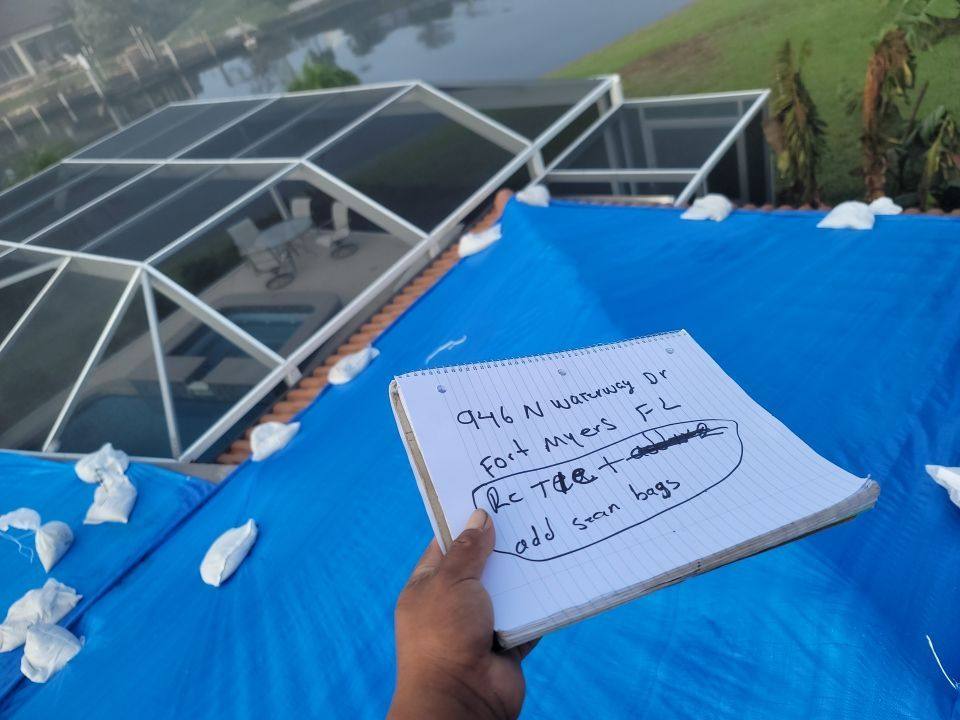 946 N Waterway Dr
Fort Myers FL
Rc Tie +
add szan bags